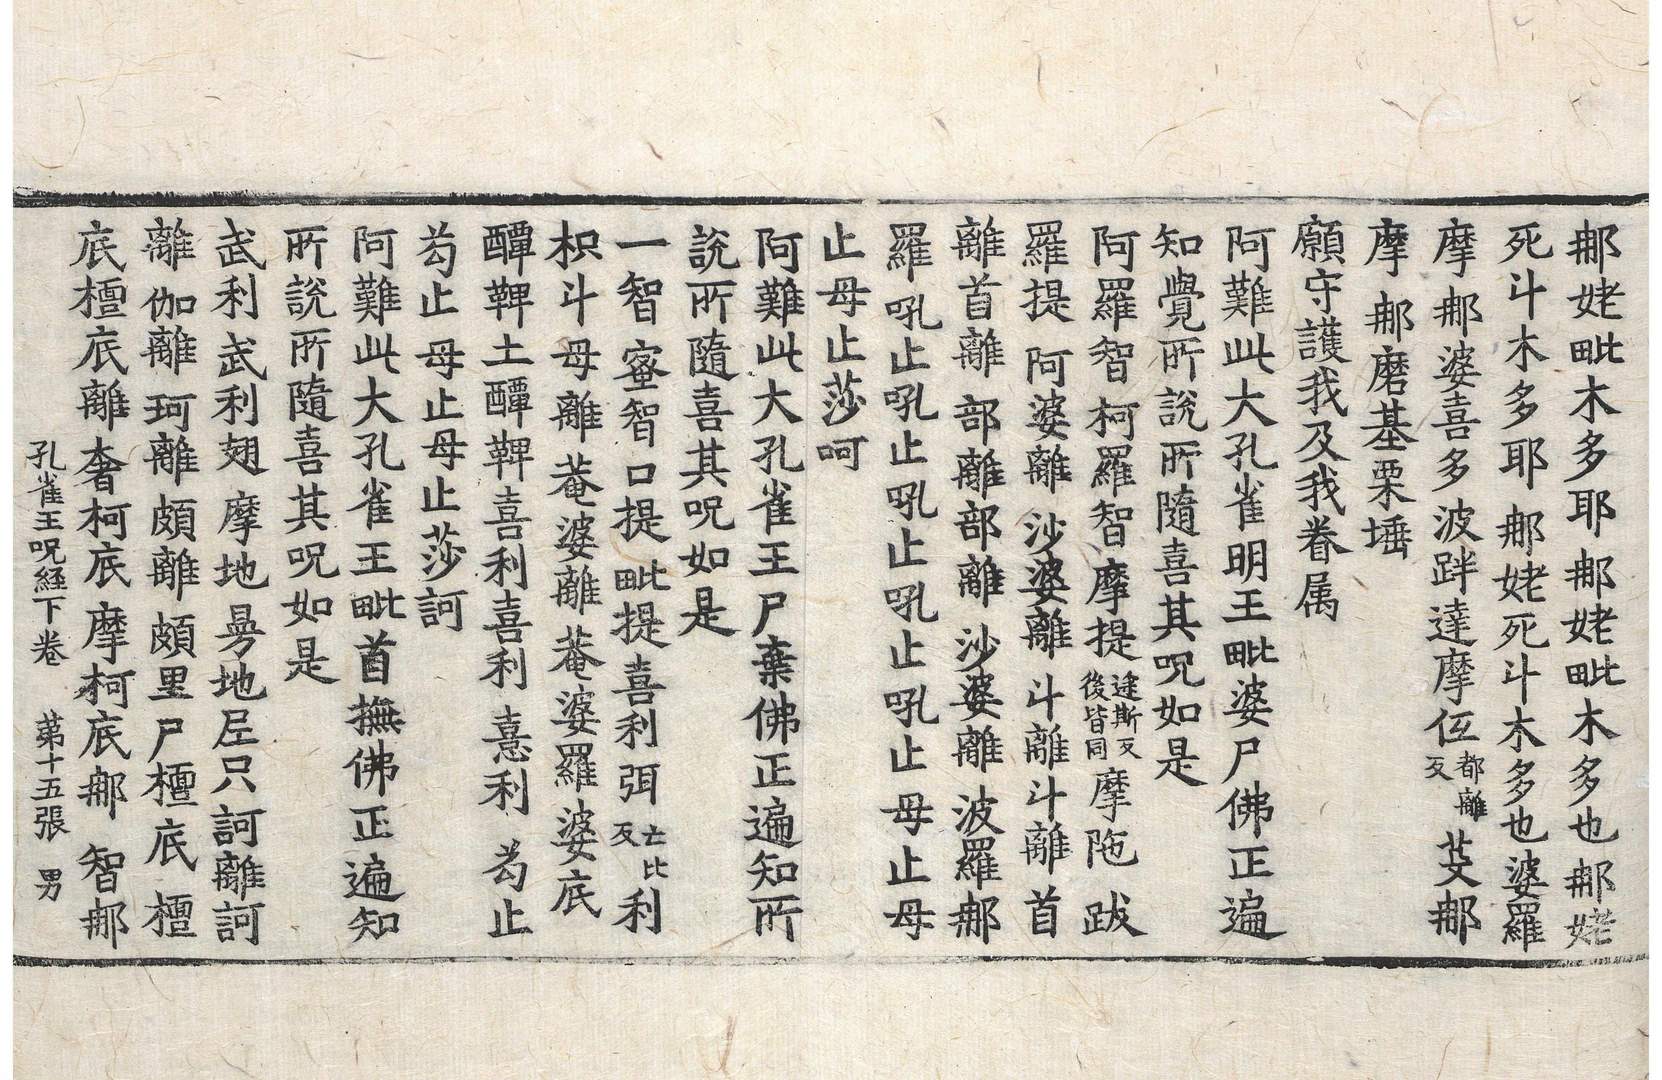 那姥毗木多耶那姥毗木多也那姥
死斗木多耶那姥死斗木多也婆羅
摩那婆喜多波跘達摩伍都離反芟那
摩那磨基栗埵
願守護我及我眷属
阿難此大孔雀明王毗婆尸佛正遍
知覺所說所隨喜其呪如是
阿羅智柯羅智摩提途斯反後皆同摩陁跋
羅提阿婆離沙婆離斗離斗離首
離首離部離部離沙婆離波羅那
羅吼止吼止吼止吼止吼止母止母
止母止莎呵
阿難此大孔雀王尸棄佛正遍知所
說所隨喜其呪如是
一智蜜智口提毗提喜利弭亡比反利
枳斗母離菴婆離菴婆羅婆底
醰鞞土醰鞞喜利喜利憙利芶止
芶止母止母止莎訶
阿難此大孔雀王毗首撫佛正遍知
所說所隨喜其呪如是
武利武利翅摩地昜地㞐只訶離訶
離伽離珂離頗離頗里尸檀底檀
底檀底離奢柯底摩柯底那智那
孔雀王呪經下卷 第十五張 男